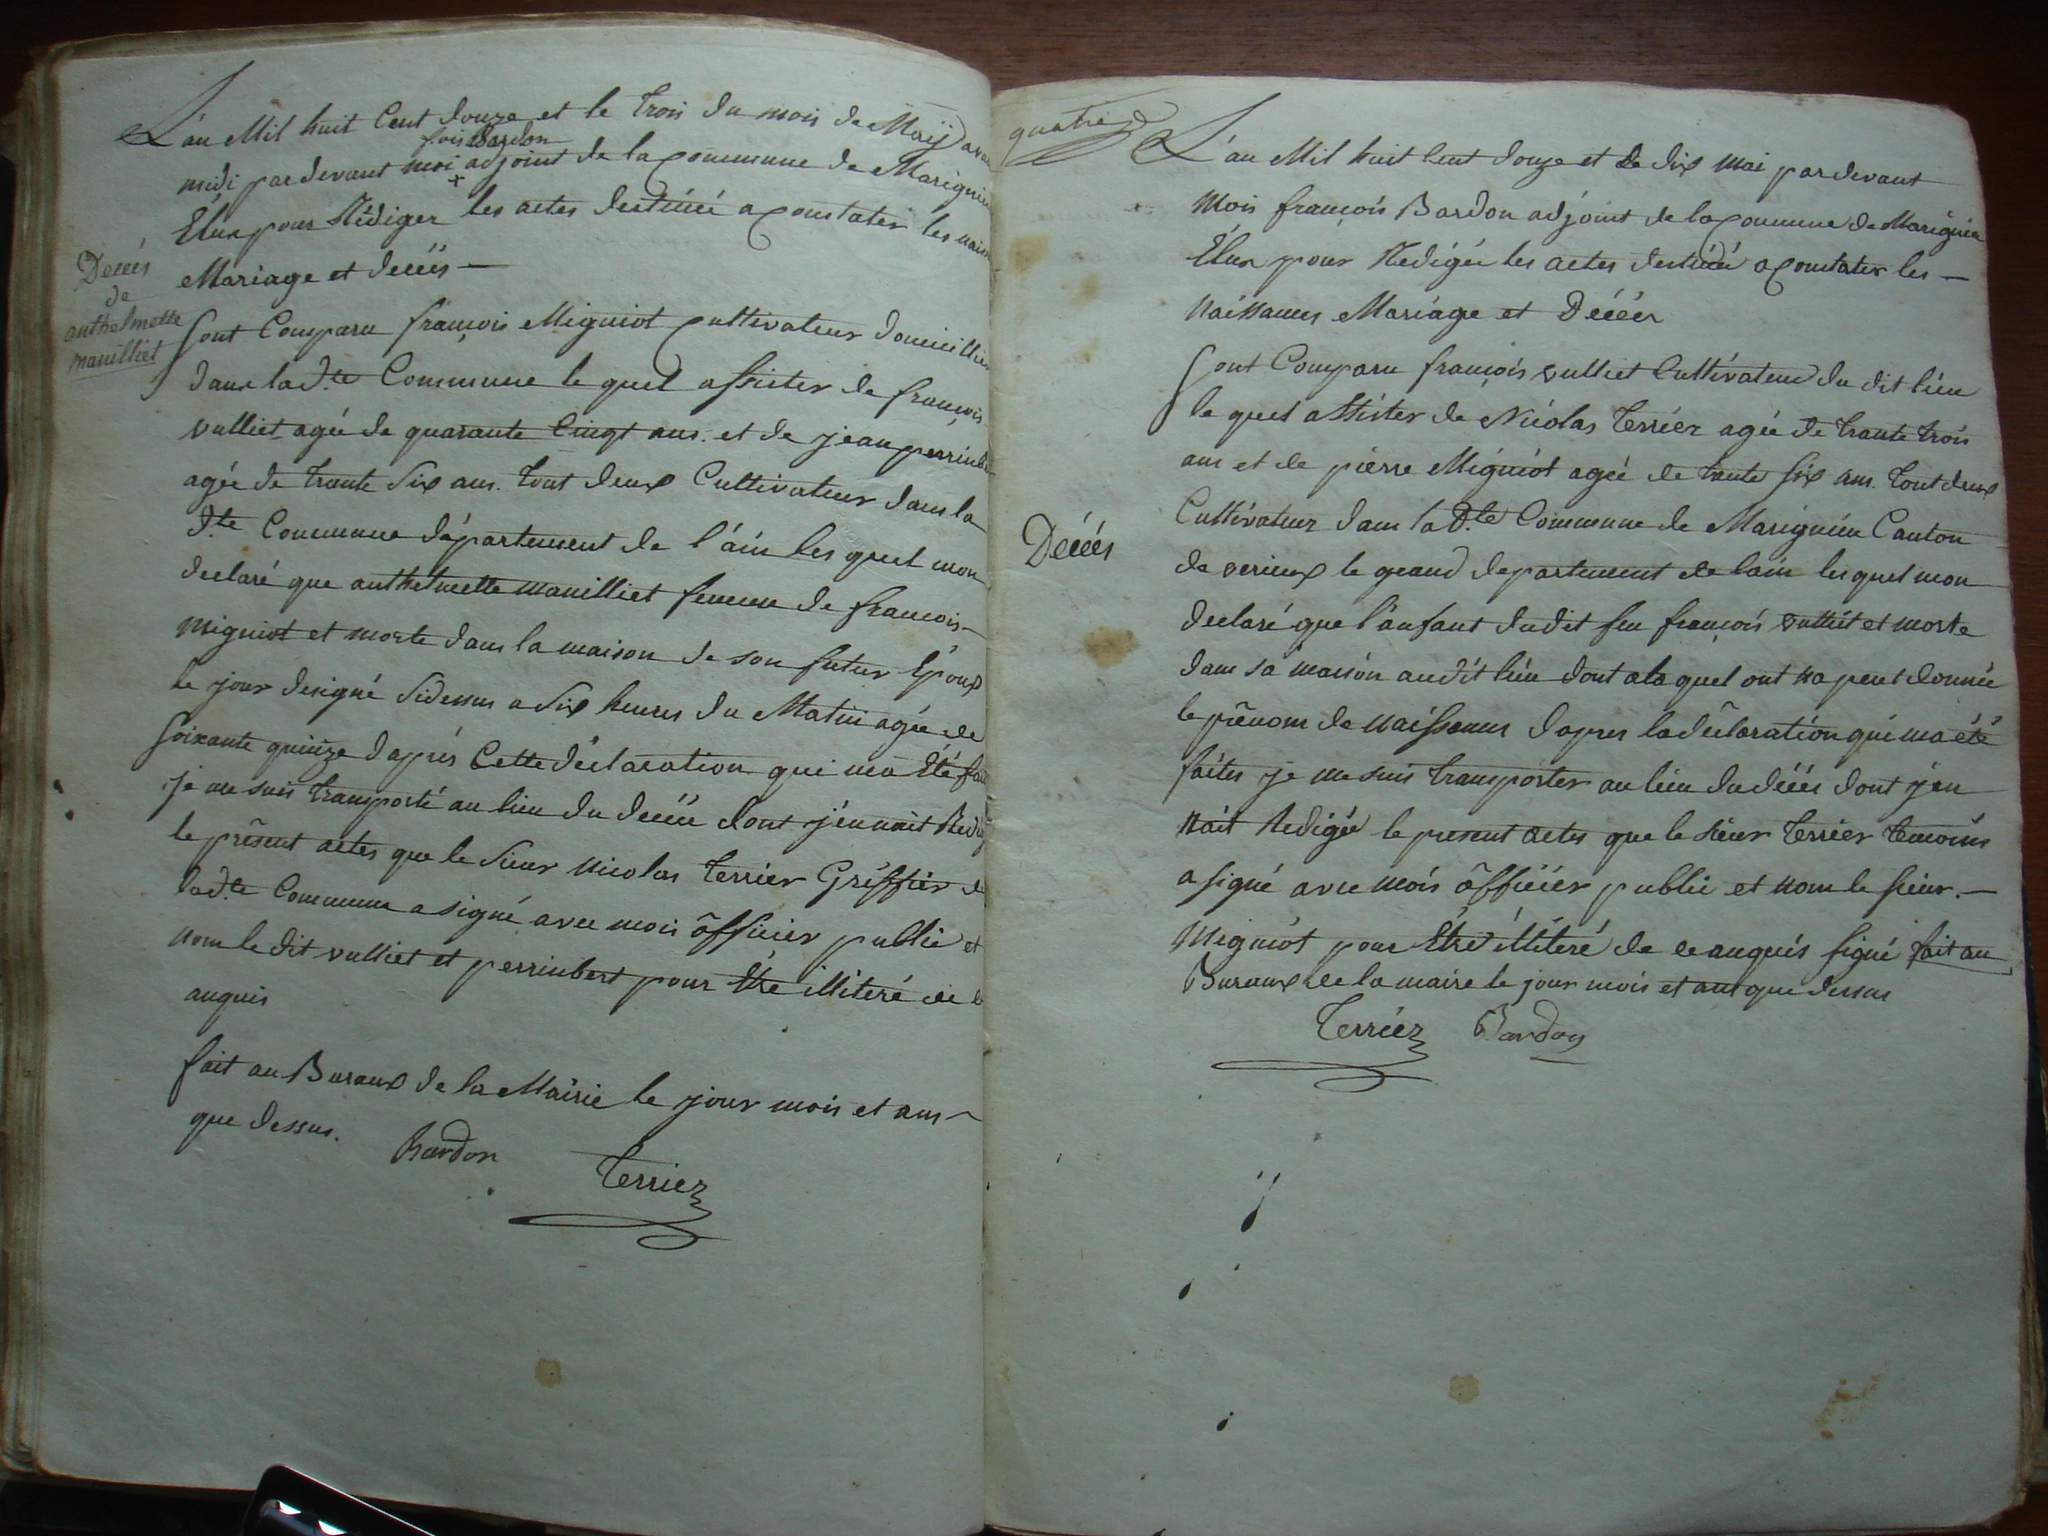 L'an Mil huit Cent douze et le trois du mois de Maÿ avan
fois Bardon
midi par devant moi + adjoint de la Commune de Marignieu
Élux pour Rédiger les actes destinéé a Constater les naiss
Mariage et decéés —
Decéés
de
anthelmette
manilliet
Sont Comparu françois Migniot Cultivateur domicillier
dans lad.te Commune le quel assister de françois
vulliet agée de quarante Cinqt ans. et de jean perrinbe
agée de trante six ans. tout deux Cultivateur dans la
d.te Commune département de l'ain les quel mon
declaré que anthelmette manilliet femme de francois —
Migniot et morte dans la maison de son futur Époux
le jour designé sidessus a six heures du Matin agée de
Soixante quinze d'aprés Cette déclaration qui ma Été fai
je me suis transporté au lieu du decéé dont j'en nait Redig
le présent actes que le Sieur nicolas Terrier Gréffier de
lad.te Commune a signé avec mois ôfficier public et
nom le dit vulliet et perrinbert pour Être illiteré de
anquis
fait au Buraux de la Mairie le jour mois et ans —
que dessus.
Bardon Terrier
quatre
L'an Mil huit Cent douze et le dix mai par devant
Mois françois Bardon adjoint de la Commune de Marignieu
Élux pour Redigée les actes destinéé a Constater les —
Naissances Mariage et Décéés
Sont Comparu françois vulliet Cultivateur du dit lieu
le quel assister de Nicolas Terrier agée de trante trois
ans et de pierre Migniot ageé de trante six ans. tout deux
Cultivateur dans la d.te Commune de Marignieu Canton
Décéés
de virieux le grand departement de lain les quel mon
declaré que l'anfant dudit feu françois vulliet et morte
dans sa maison audit lieu dont a la quel ont na peut donnée
le prénom de naissances d'apres la déclaration qui ma été
faites je me suis transporter au lieu du décés dont j'en
nait Redigée le present actes que le sieur Terrier temoins
a signé avec mois ôfficier public et nom le sieur. —
Migniot pour Être illiteré de ce anquis signé fait au
Buraux de la maire le jour mois et ans que dessus
Terrier Bardon